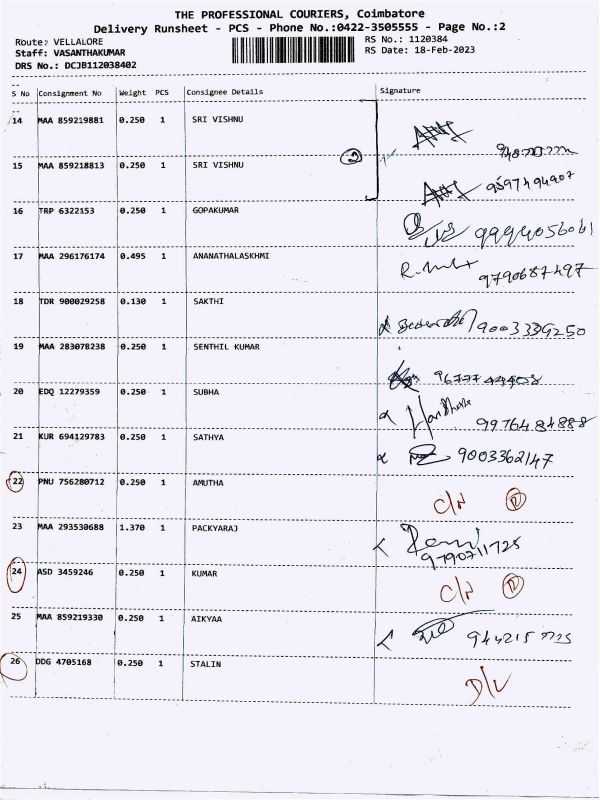 THE PROFESSIONAL COURIERS, Coimbatore
Delivery Runsheet - PCS - Phone No.:0422-3505555 - Page No.:2
Route: VELLALORE RS No.: 1120384
Staff: VASANTHAKUMAR RS Date: 18-Feb-2023
DRS No.: DCJB112038402
S No Consignment No Weight PCS Consignee Details Signature
14 MAA 859219881 0.250 1 SRI VISHNU
2
15 MAA 859218813 0.250 1 SRI VISHNU
9597494907
16 TRP 6322153 0.250 1 GOPAKUMAR
9994056061
17 MAA 296176174 0.495 1 ANANATHALASKHMI
9790687497
18 TDR 900029258 0.130 1 SAKTHI
9003339250
19 MAA 283078238 0.250 1 SENTHIL KUMAR
20 EDQ 12279359 0.250 1 SUBHA
9976484888
21 KUR 694129783 0.250 1 SATHYA
9003362147
22 PNU 756280712 0.250 1 AMUTHA C/N
23 MAA 293530688 1.370 1 PACKYARAJ
9790711725
24 ASD 3459246 0.250 1 KUMAR C/N
25 MAA 859219330 0.250 1 AIKYAA
26 DDG 4705168 0.250 1 STALIN D/L